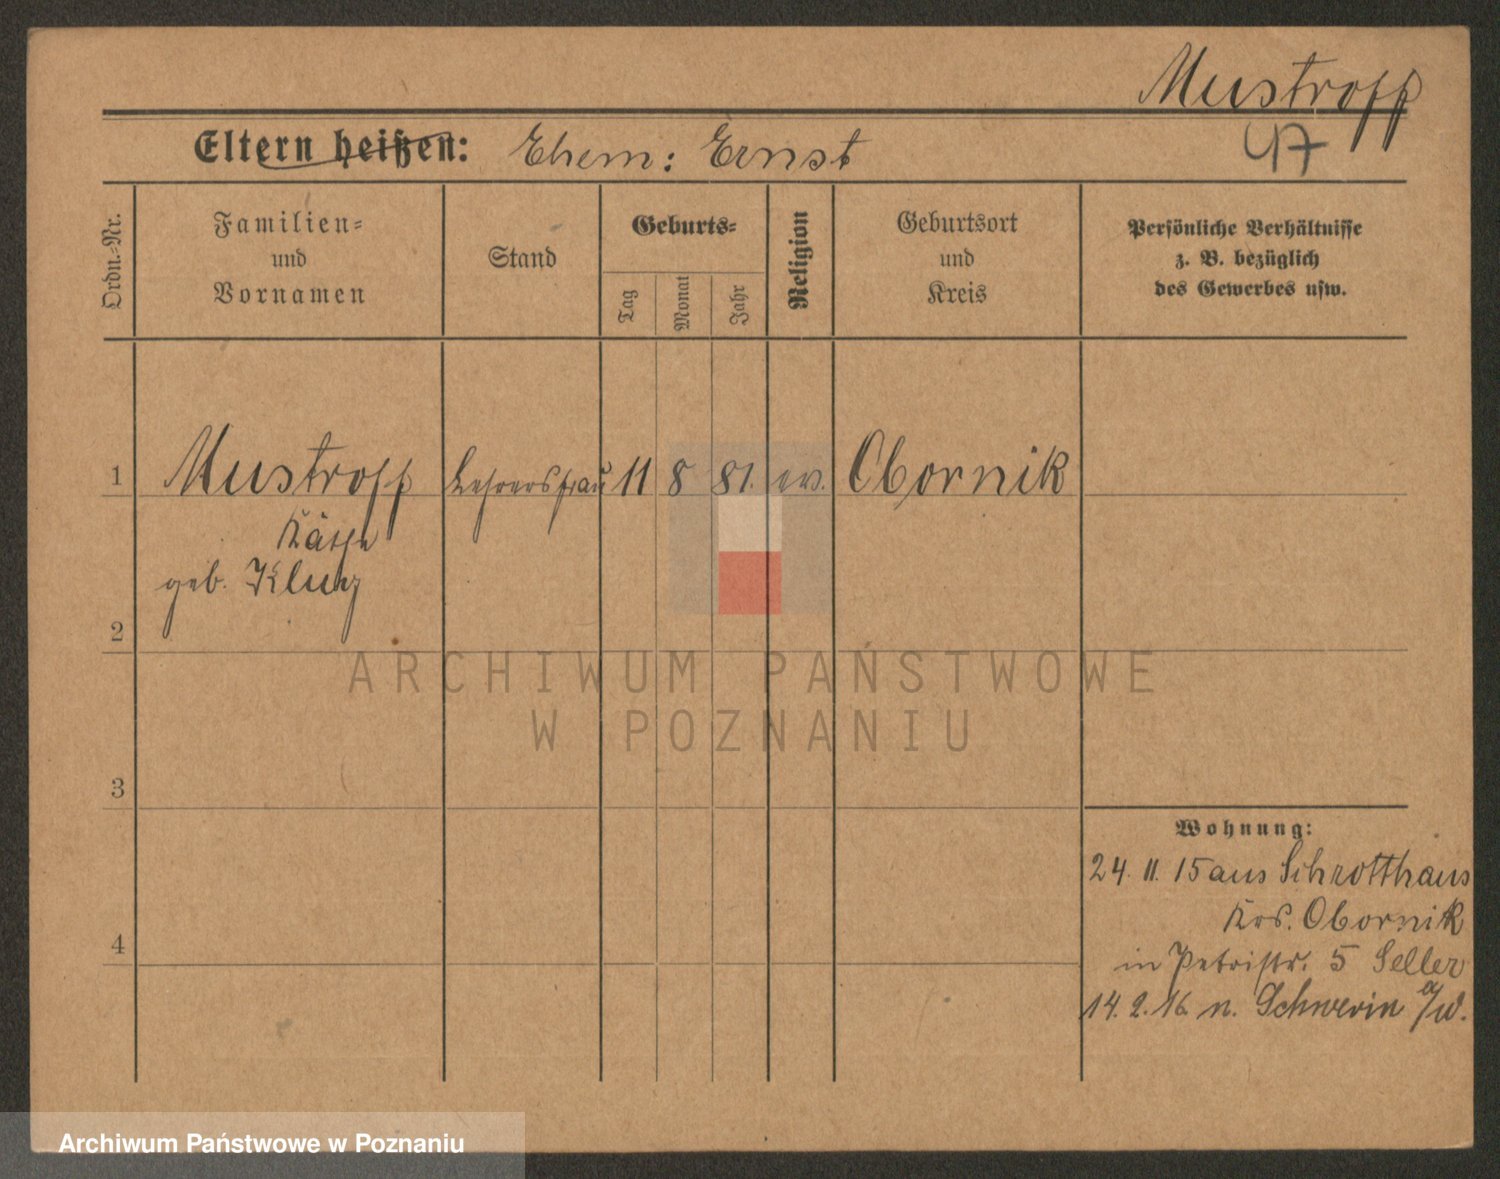 Mustroph
47
Eltern heißen: Ehem: Ernst
Ordn.-Nr.
Familien-
und
Vornamen
Stand
Geburts-
Tag
Monat
Jahr
Religion
Geburtsort
und
Kreis
Persönliche Verhältnisse
z. B. bezüglich
des Gewerbes usw.
1 Mustroph Lehrersfrau 11 8 81. ev. Obornik
Käthe
geb.
2
3
4
Wohnung:
24. 11. 15 aus Schrotthaus
Krs. Obornik
in Petristr. 5 Seller
14. 2. 16. n. Schwerin a/W.
ARCHIWUM PAŃSTWOWE
W POZNANIU
Archiwum Państwowe w Poznaniu